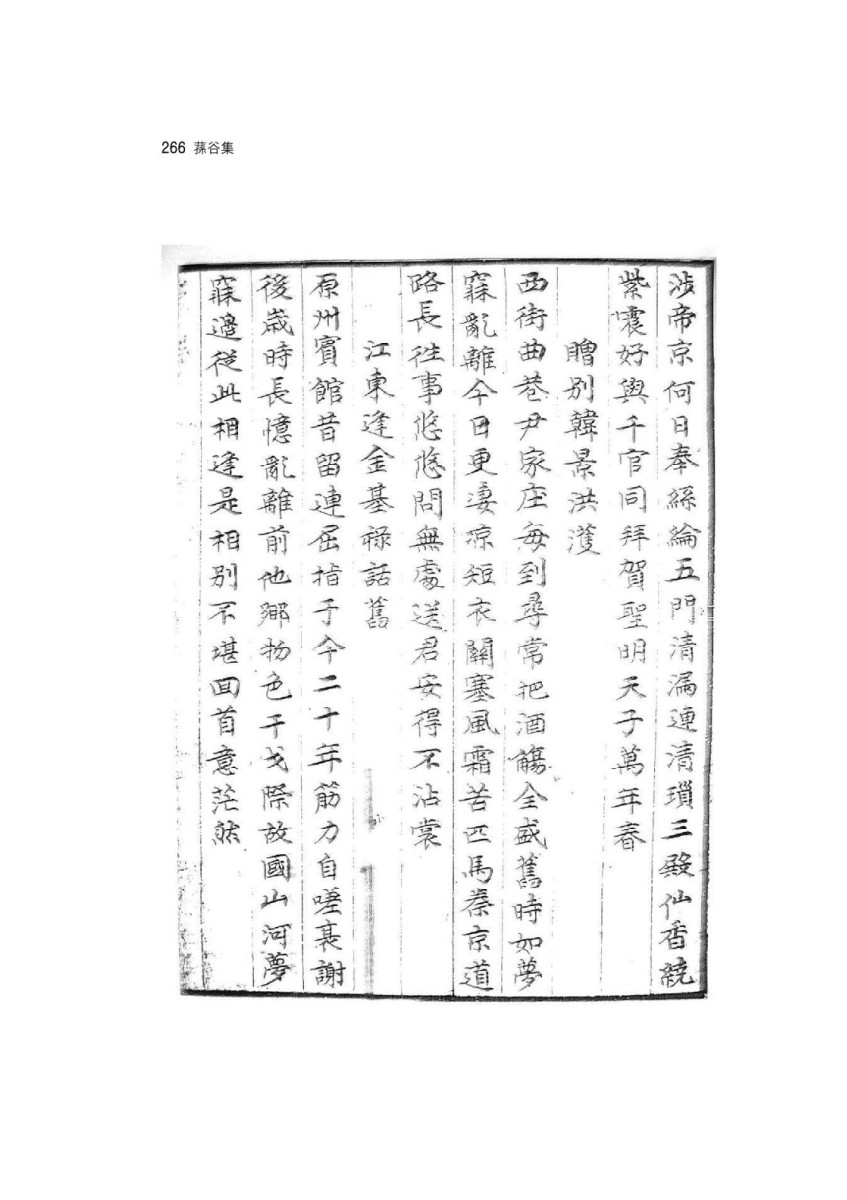 266 蓀谷集
涉帝京何日奉絲綸五門清漏連清瑣三殿仙香繞
紫宸好與千官同拜賀聖明天子萬年春
贈別韓景洪濩
西街曲巷尹家庄每到尋常把酒觴全盛舊時如夢
寐亂離今日更凄凉短衣關塞風霜苦匹馬秦京道
路長往事悠悠問無處送君安得不沾裳
江東逢金基祿話舊
原州賓館昔留連屈指于今二十年筋力自嗟衰謝
後歲時長憶亂離前他鄉物色干戈際故國山河夢
寐邊從此相逢是相別不堪回首意茫然